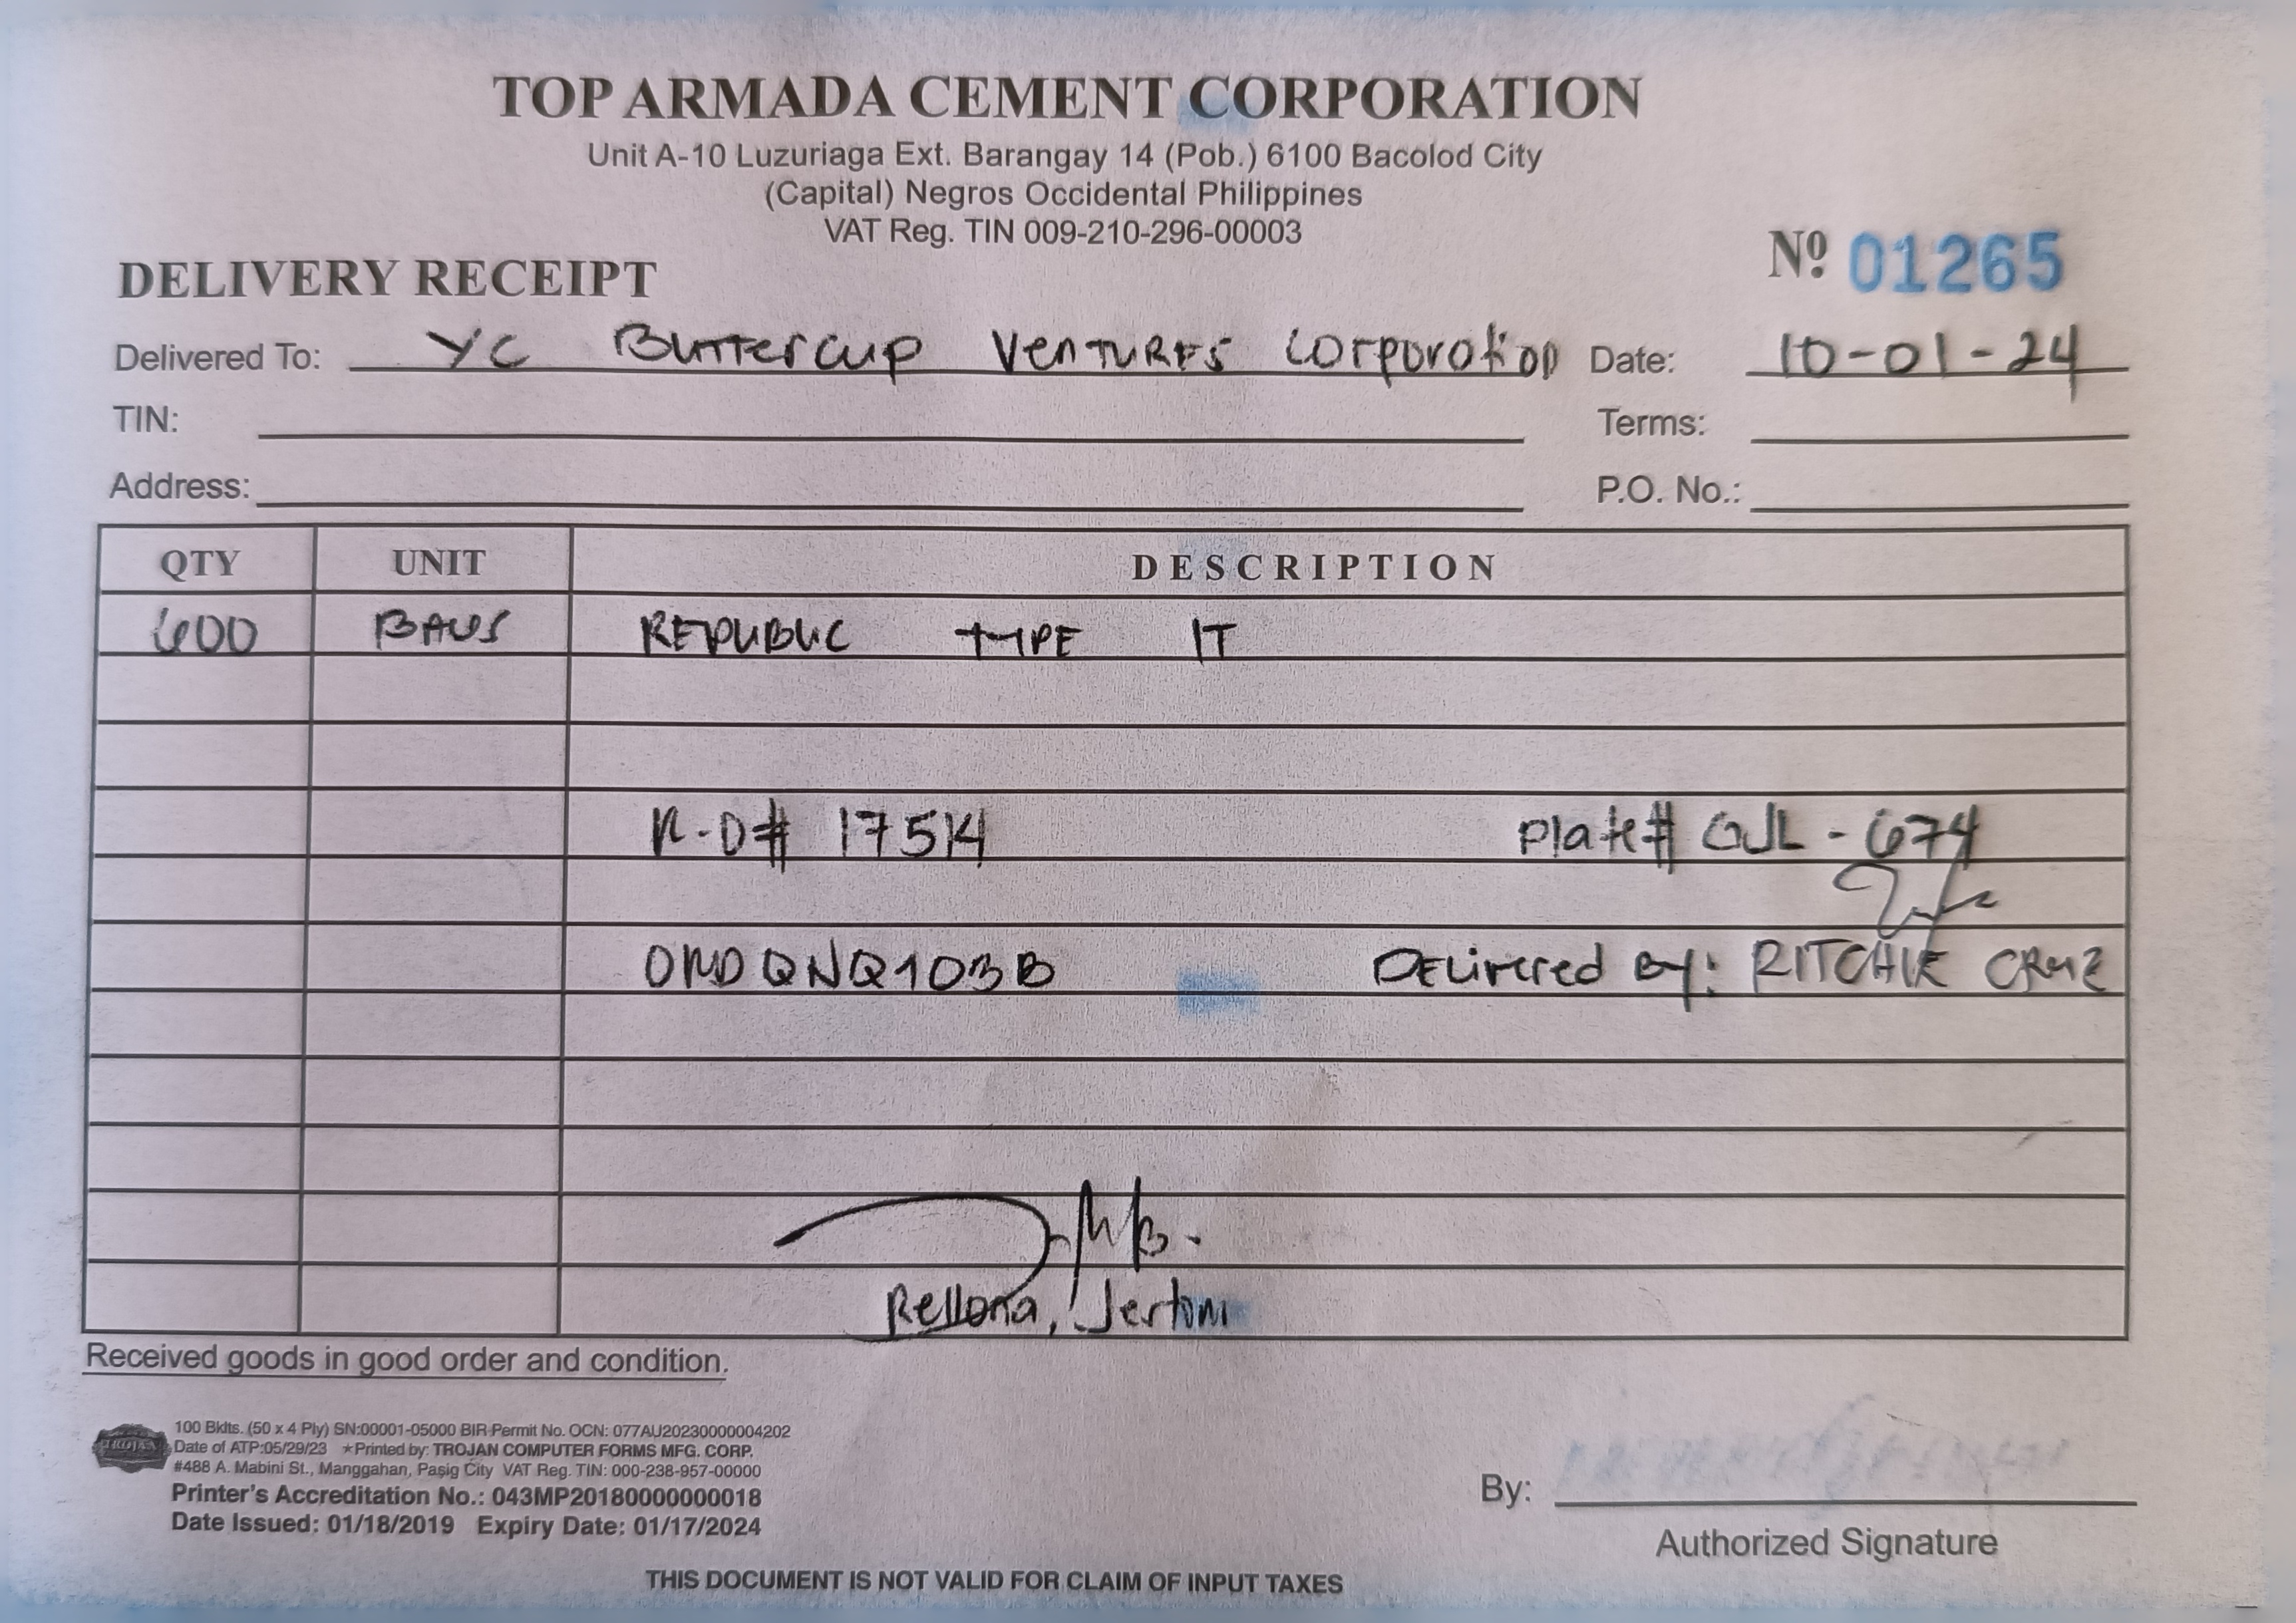 TOP ARMADA CEMENT CORPORATION
Unit A-10 Luzuriaga Ext. Barangay 14 (Pob.) 6100 Bacolod City
(Capital) Negros Occidental Philippines
VAT Reg. TIN 009-210-296-00003
DELIVERY RECEIPT Nº 01265
Delivered To: YC Buttercup Ventures Corporation Date: 10-01-24
TIN: Terms:
Address: P.O. No.:
QTY UNIT DESCRIPTION
600 BAGS REPUBLIC TYPE 1T
17514 Plate# GJL-674
Delivered By: RITCHIE CRUZ
Rellona, Jertoni
Received goods in good order and condition.
TROJAN
100 Bklts. (50 x 4 Ply) SN:00001-05000 BIR Permit No. OCN: 077AU20230000004202
Date of ATP:05/29/23 ★Printed by: TROJAN COMPUTER FORMS MFG. CORP.
#488 A. Mabini St., Manggahan, Pasig City VAT Reg. TIN: 000-238-957-00000
Printer's Accreditation No.: 043MP20180000000018
Date Issued: 01/18/2019 Expiry Date: 01/17/2024
By:
Authorized Signature
THIS DOCUMENT IS NOT VALID FOR CLAIM OF INPUT TAXES